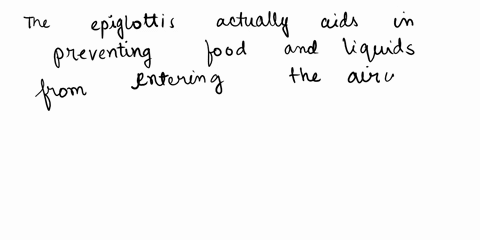 The epiglottis actually aids in
preventing food and liquids
from entering the